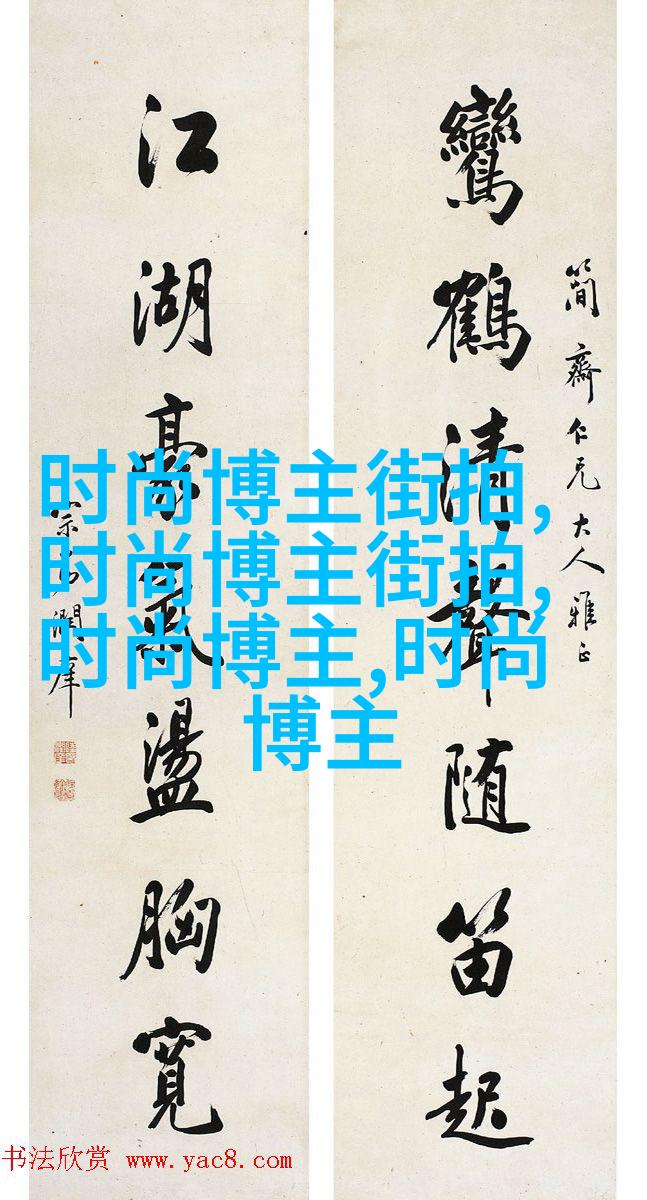 簡齋仁兄大人雅正
鸞鶴清聲随笛起
江湖豪氣盪胸寬
潤庠
时尚博主街拍,
时尚博主街拍,
时尚博主,时尚
博主
书法欣赏 www.yac8.com